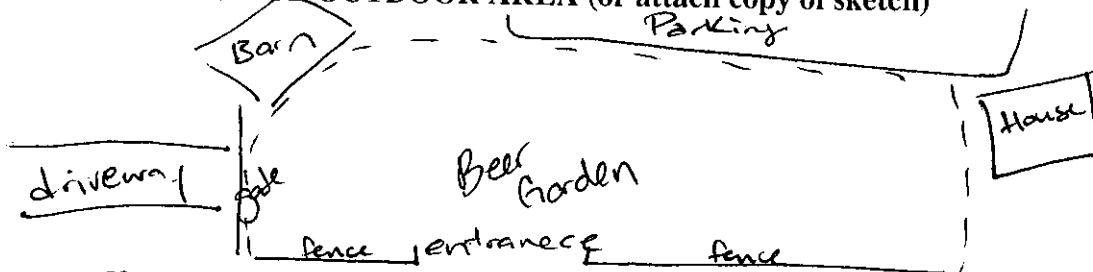 OUTDOOR AREA (or attach copy of sketch)
Parking
Barn
House
driveway
gate
Beer
Garden
fence entranece fence